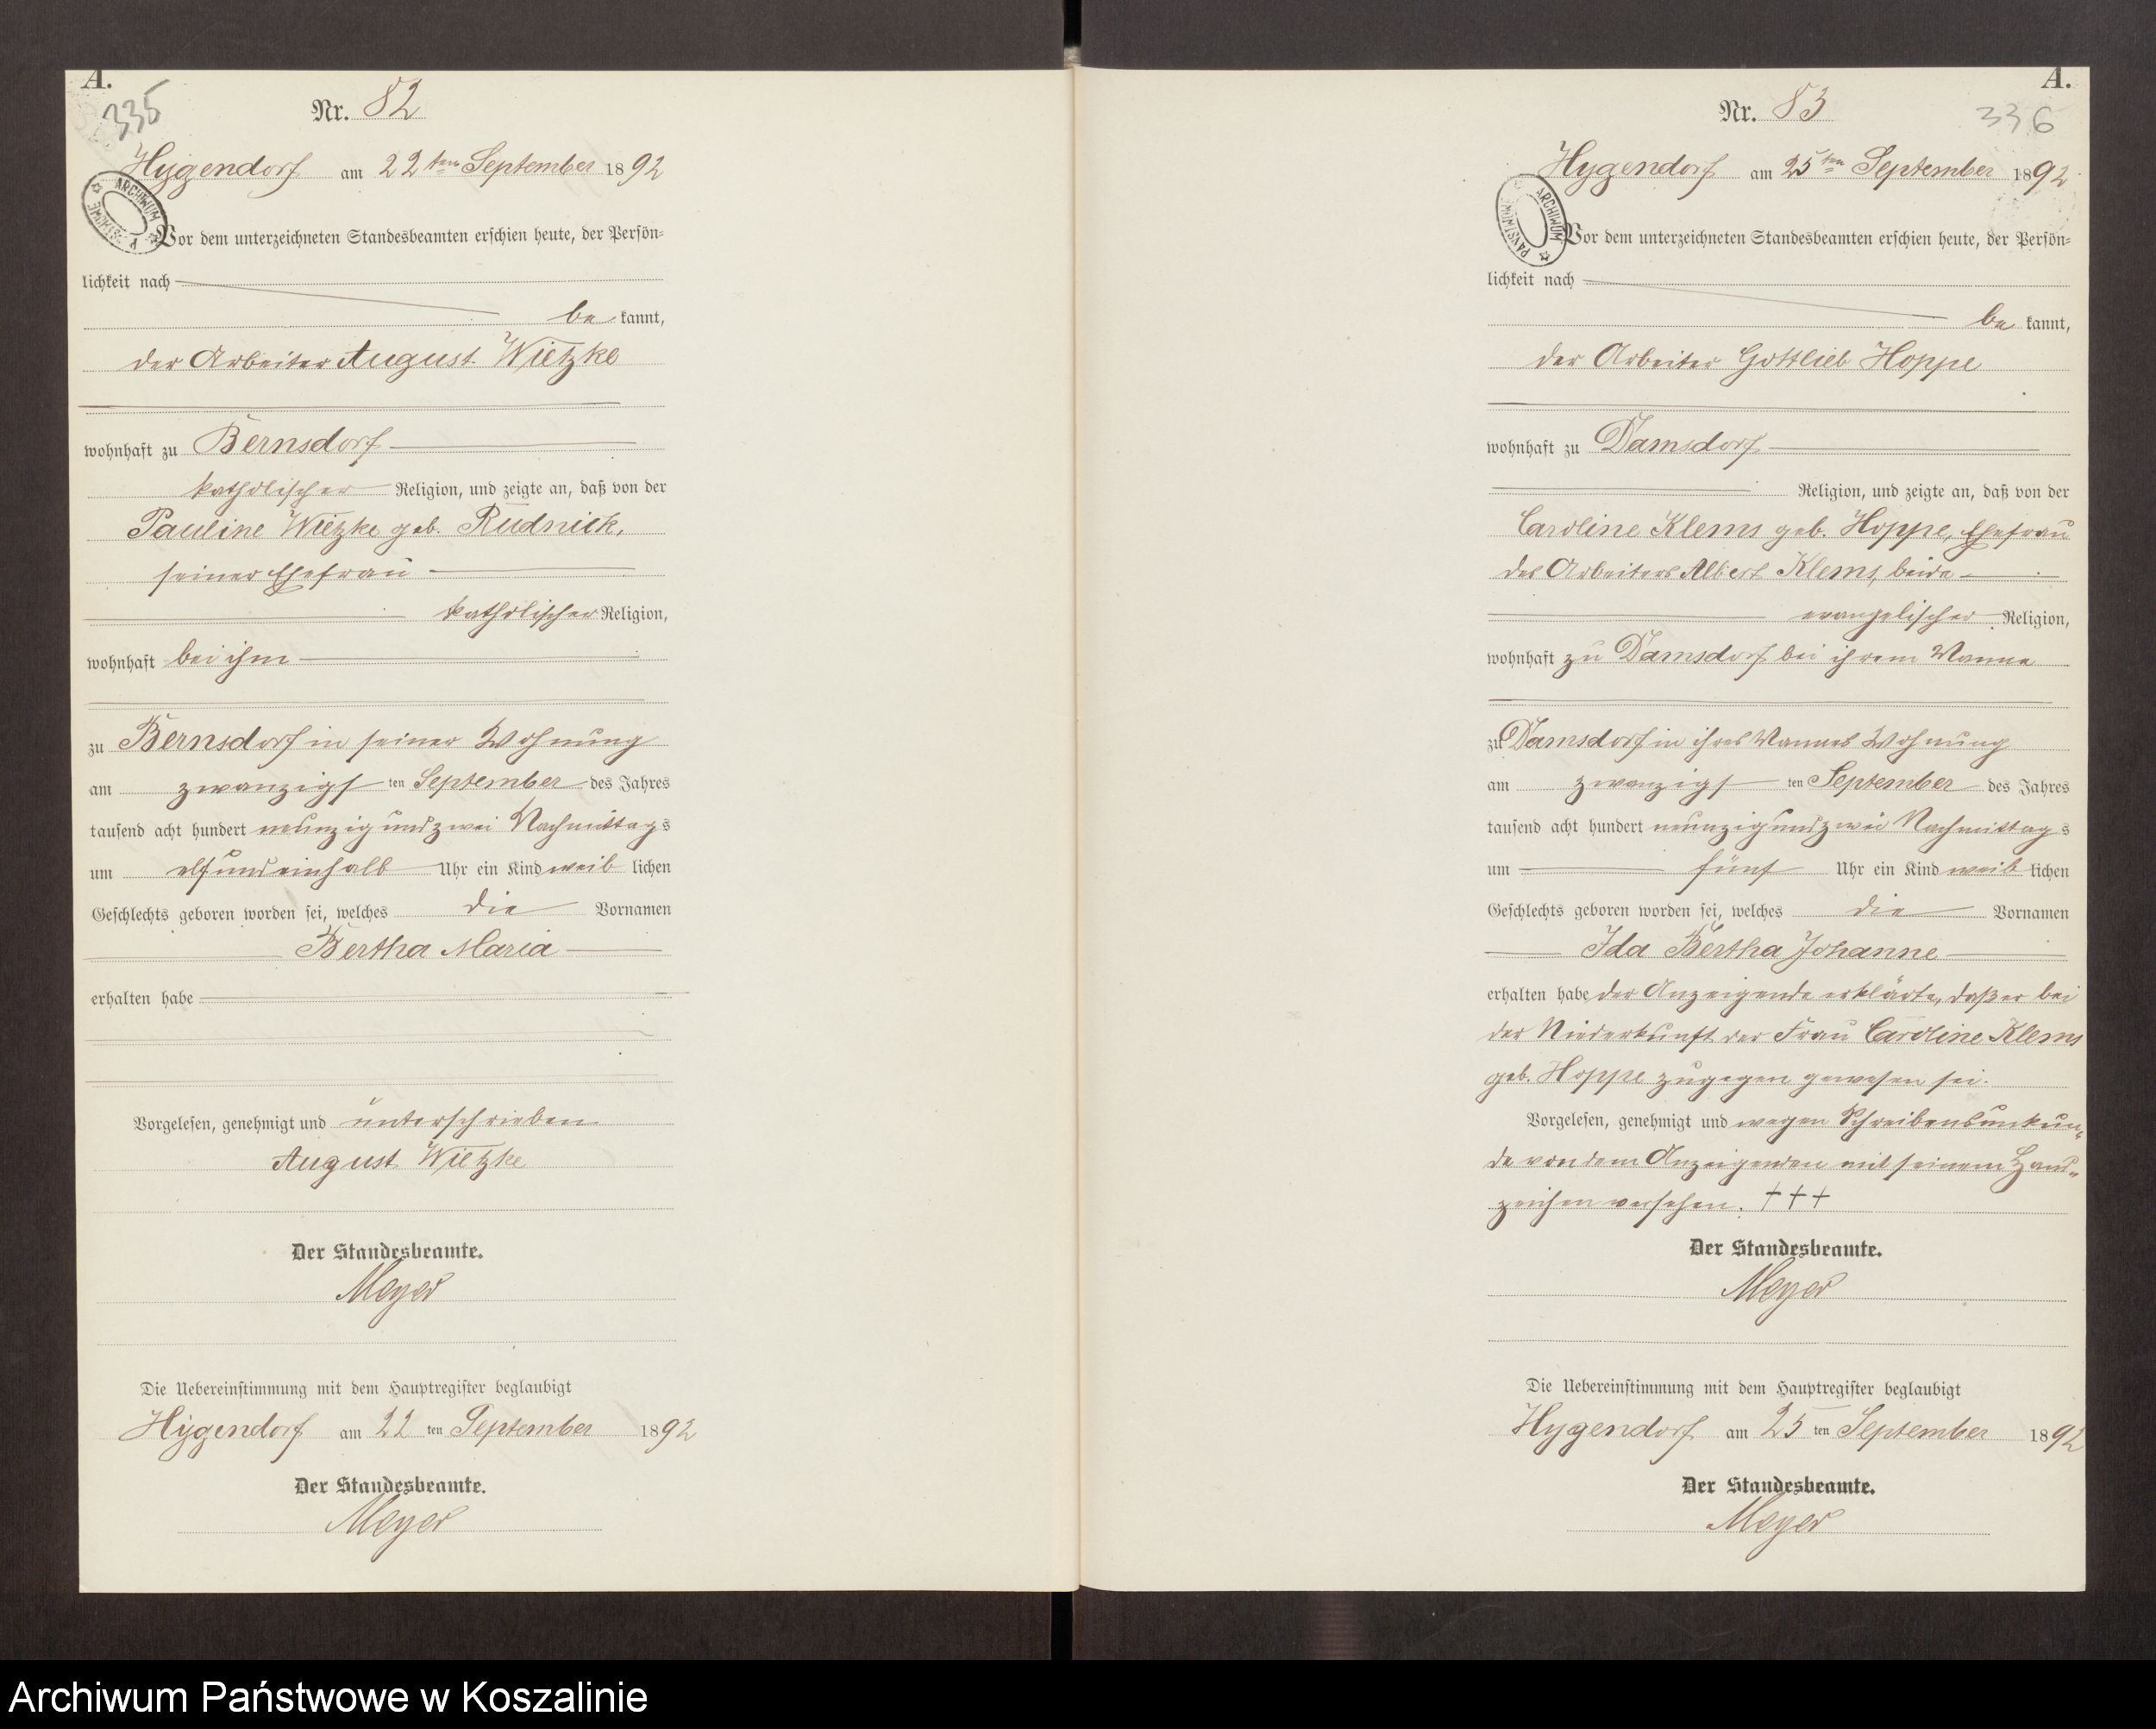 A.
335
Nr. 82
Hygendorf am 22ten September 1892
ARCHIWUM
Vor dem unterzeichneten Standesbeamten erschien heute, der Persön-
lichkeit nach
be kannt,
der Arbeiter August Wietzke
wohnhaft zu Bernsdorf
katholischer Religion, und zeigte an, daß von der
Pauline Wietzke geb. Rudnick,
seiner Ehefrau
katholischer Religion,
wohnhaft bei ihm
zu Bernsdorf in seiner Wohnung
am zwanzigsten September des Jahres
tausend acht hundert neunzig und zwei Nachmittags
um elf und einhalb Uhr ein Kind weib lichen
Geschlechts geboren worden sei, welches die Vornamen
Bertha Maria
erhalten habe
Vorgelesen, genehmigt und unterschrieben
August Wietzke
Der Standesbeamte.
Meyer
Die Uebereinstimmung mit dem Hauptregister beglaubigt
Hygendorf am 22 ten September 1892
Der Standesbeamte.
Meyer
A.
336
Nr. 83
Hygendorf am 25ten September 1892
ARCHIWUM PAŃSTWOWE
Vor dem unterzeichneten Standesbeamten erschien heute, der Persön-
lichkeit nach
be kannt,
der Arbeiter Gottlieb Hoppe
wohnhaft zu Damsdorf
Religion, und zeigte an, daß von der
Caroline Klems geb. Hoppe, Ehefrau
des Arbeiters Albert Klems, beide
evangelischer Religion,
wohnhaft zu Damsdorf bei ihrem Manne
zu Damsdorf in ihres Mannes Wohnung
am zwanzigsten September des Jahres
tausend acht hundert neunzig und zwei Nachmittags
um fünf Uhr ein Kind weib lichen
Geschlechts geboren worden sei, welches die Vornamen
Ida Bertha Johanne
erhalten habe der Anzeigende erklärte, daß er bei
der Niederkunft der Frau Caroline Klems
geb. Hoppe zugegen gewesen sei.
Vorgelesen, genehmigt und wegen Schreibensunkun-
de von dem Anzeigenden mit seinem Hand-
zeichen versehen. +++
Der Standesbeamte.
Meyer
Die Uebereinstimmung mit dem Hauptregister beglaubigt
Hygendorf am 25 ten September 1892
Der Standesbeamte.
Meyer
Archiwum Państwowe w Koszalinie